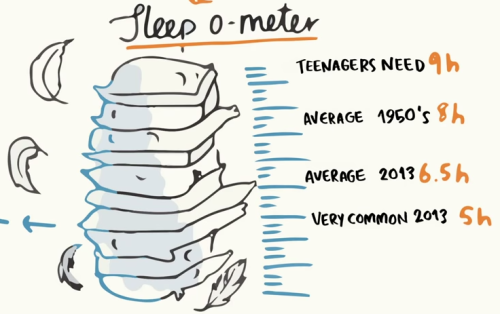 Sleep o-meter
TEENAGERS NEED 9h
AVERAGE 1950's 8h
AVERAGE 2013 6.5h
VERY COMMON 2013 5h